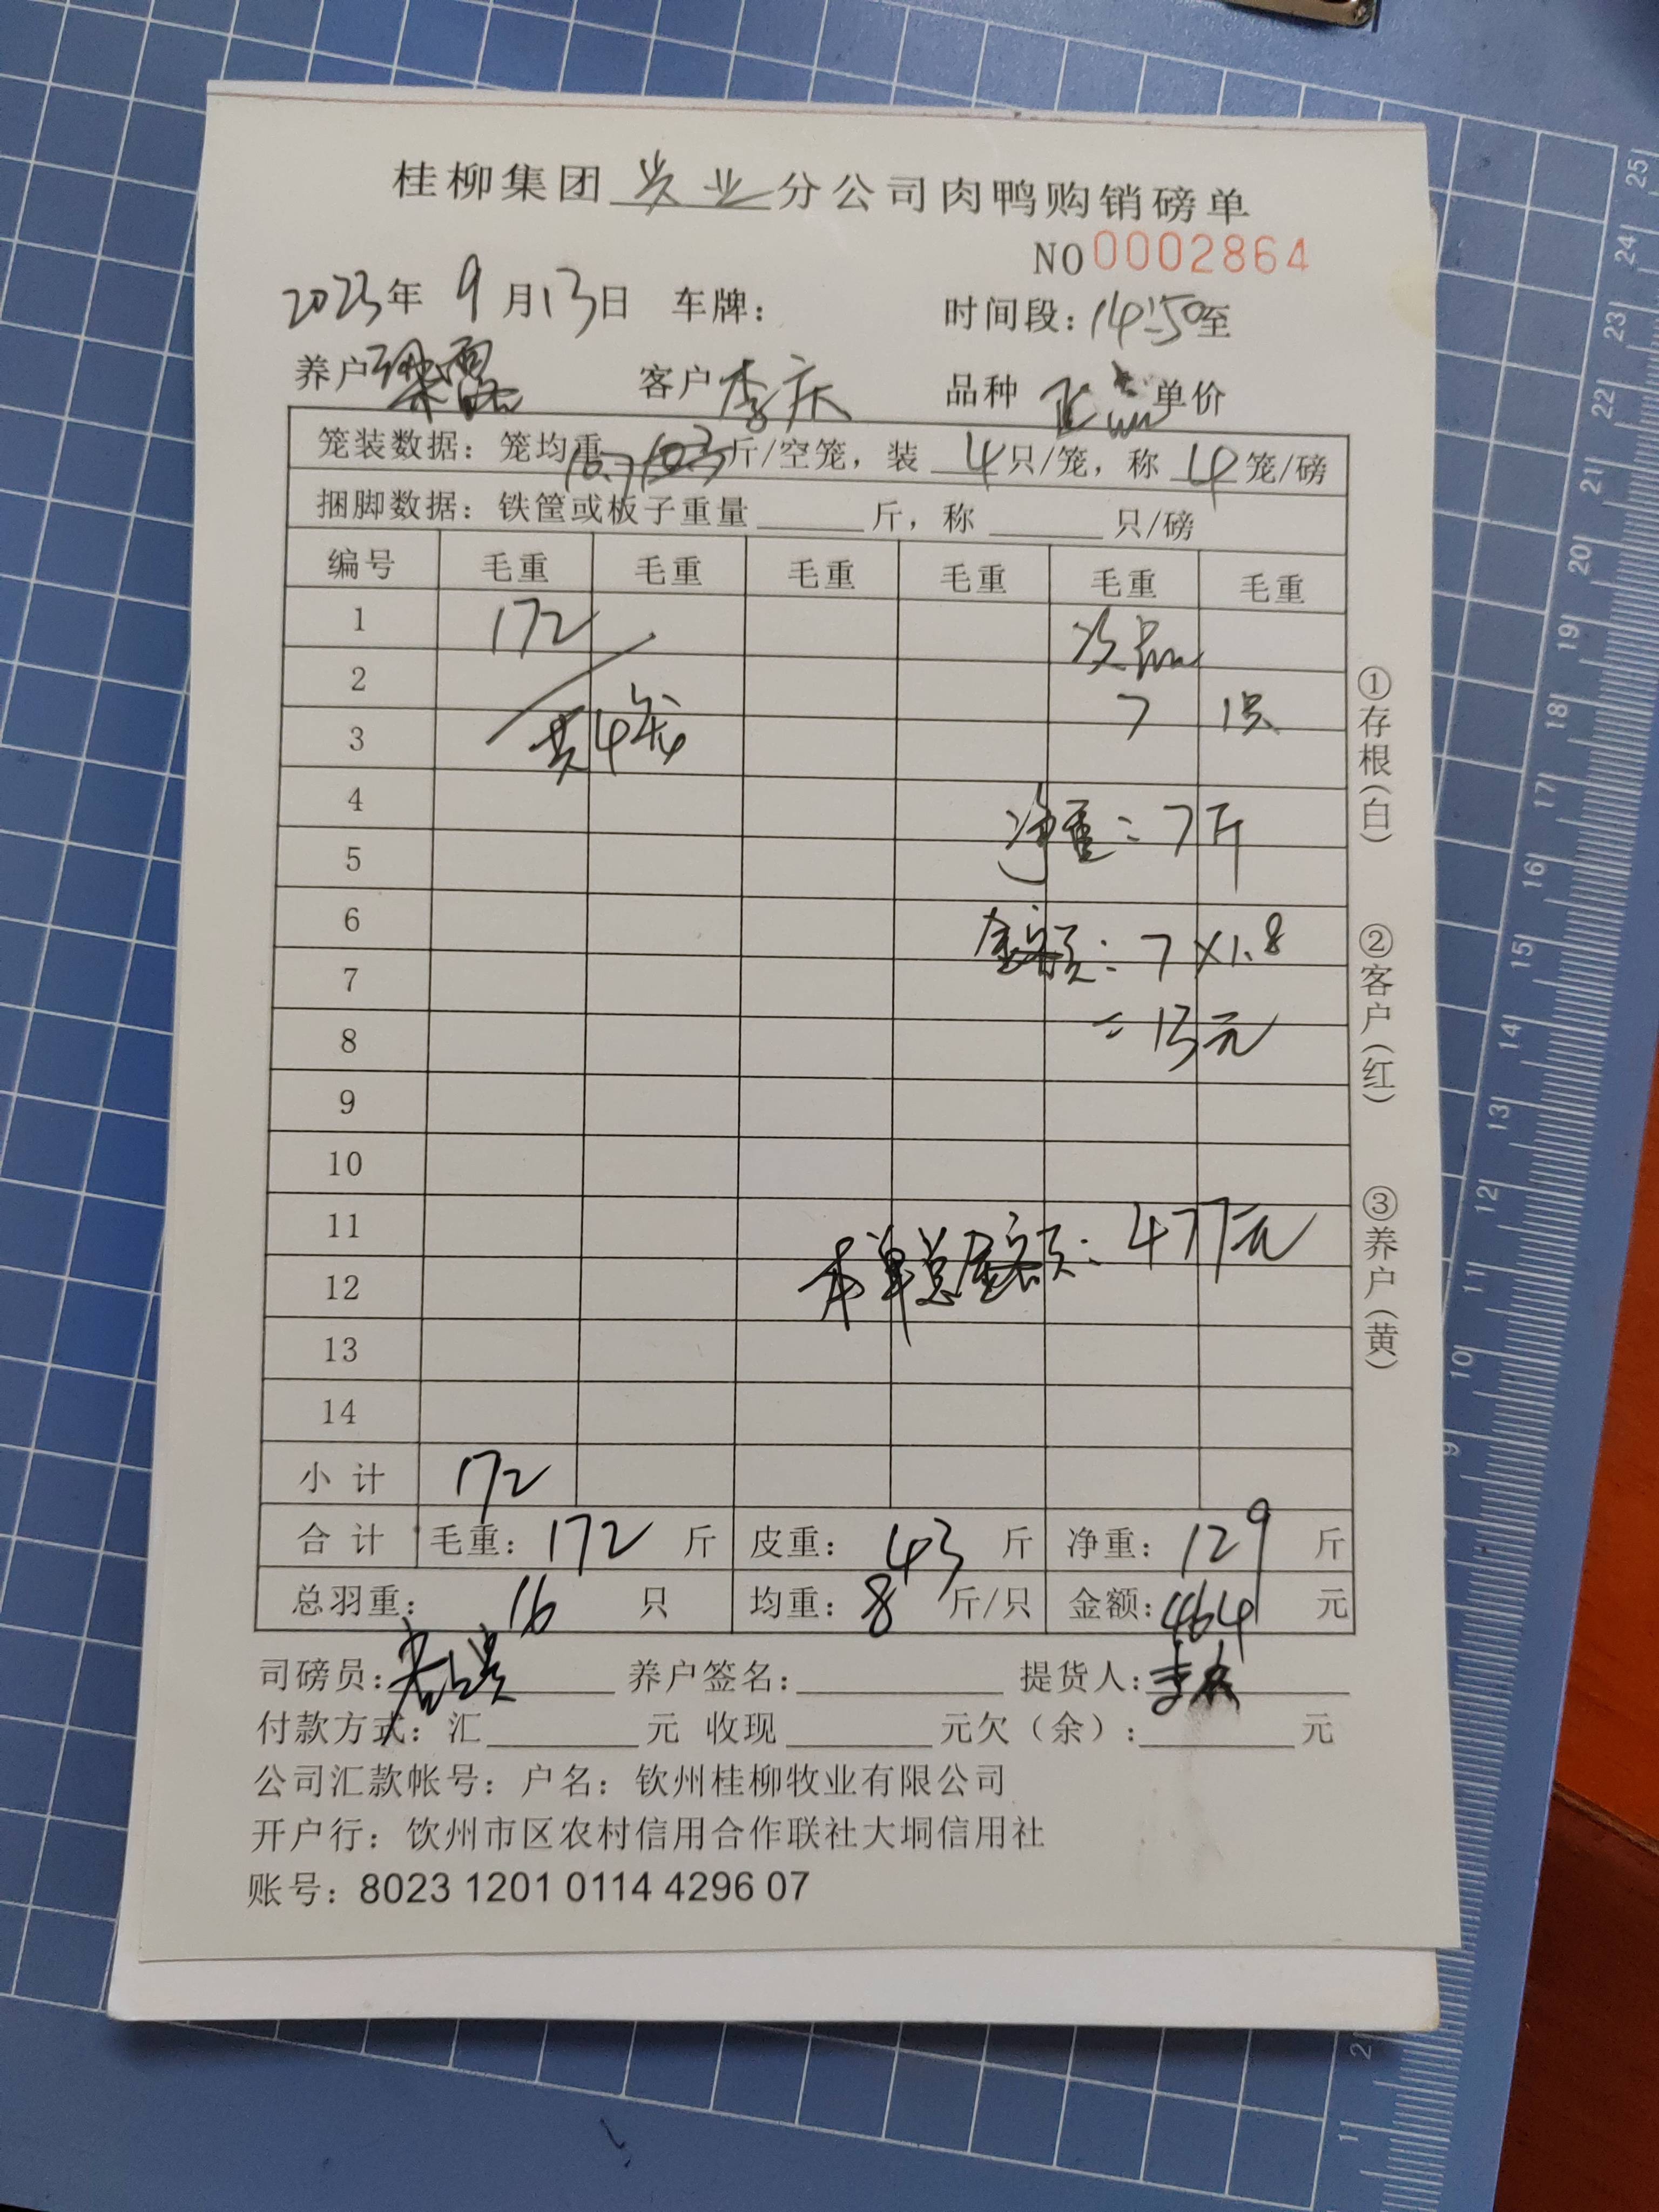 桂柳集团 业分公司肉鸭购销磅单
NO 0002864
2023年 9月13日 车牌: 时间段:14:50至
养户 梁 客户 李庆 品种 正品 单价
笼装数据: 笼均重 10.7 斤/空笼, 装 4 只/笼, 称 4 笼/磅
捆脚数据: 铁筐或板子重量 斤, 称 只/磅
编号 毛重 毛重 毛重 毛重 毛重 毛重
1 172 次品
2 7 1只
3 共4笼
4 净重: 7斤
5
6 金额: 7×1.8
7
8 =13元
9
10
11 本单总金额: 477元
12
13
14
小 计 172
合 计 毛重: 172 斤 皮重: 43 斤 净重: 129 斤
总羽重: 16 只 均重: 8 斤/只 金额: 464 元
司磅员: 养户签名: 提货人: 李庆
付款方式: 汇 元 收现 元欠(余): 元
公司汇款帐号: 户名: 钦州桂柳牧业有限公司
开户行: 钦州市区农村信用合作联社大垌信用社
账号: 8023 1201 0114 4296 07
①存根(白) ②客户(红) ③养户(黄)
25
24
23
22
21
20
19
18
17
16
15
14
13
12
11
10
9
2
1